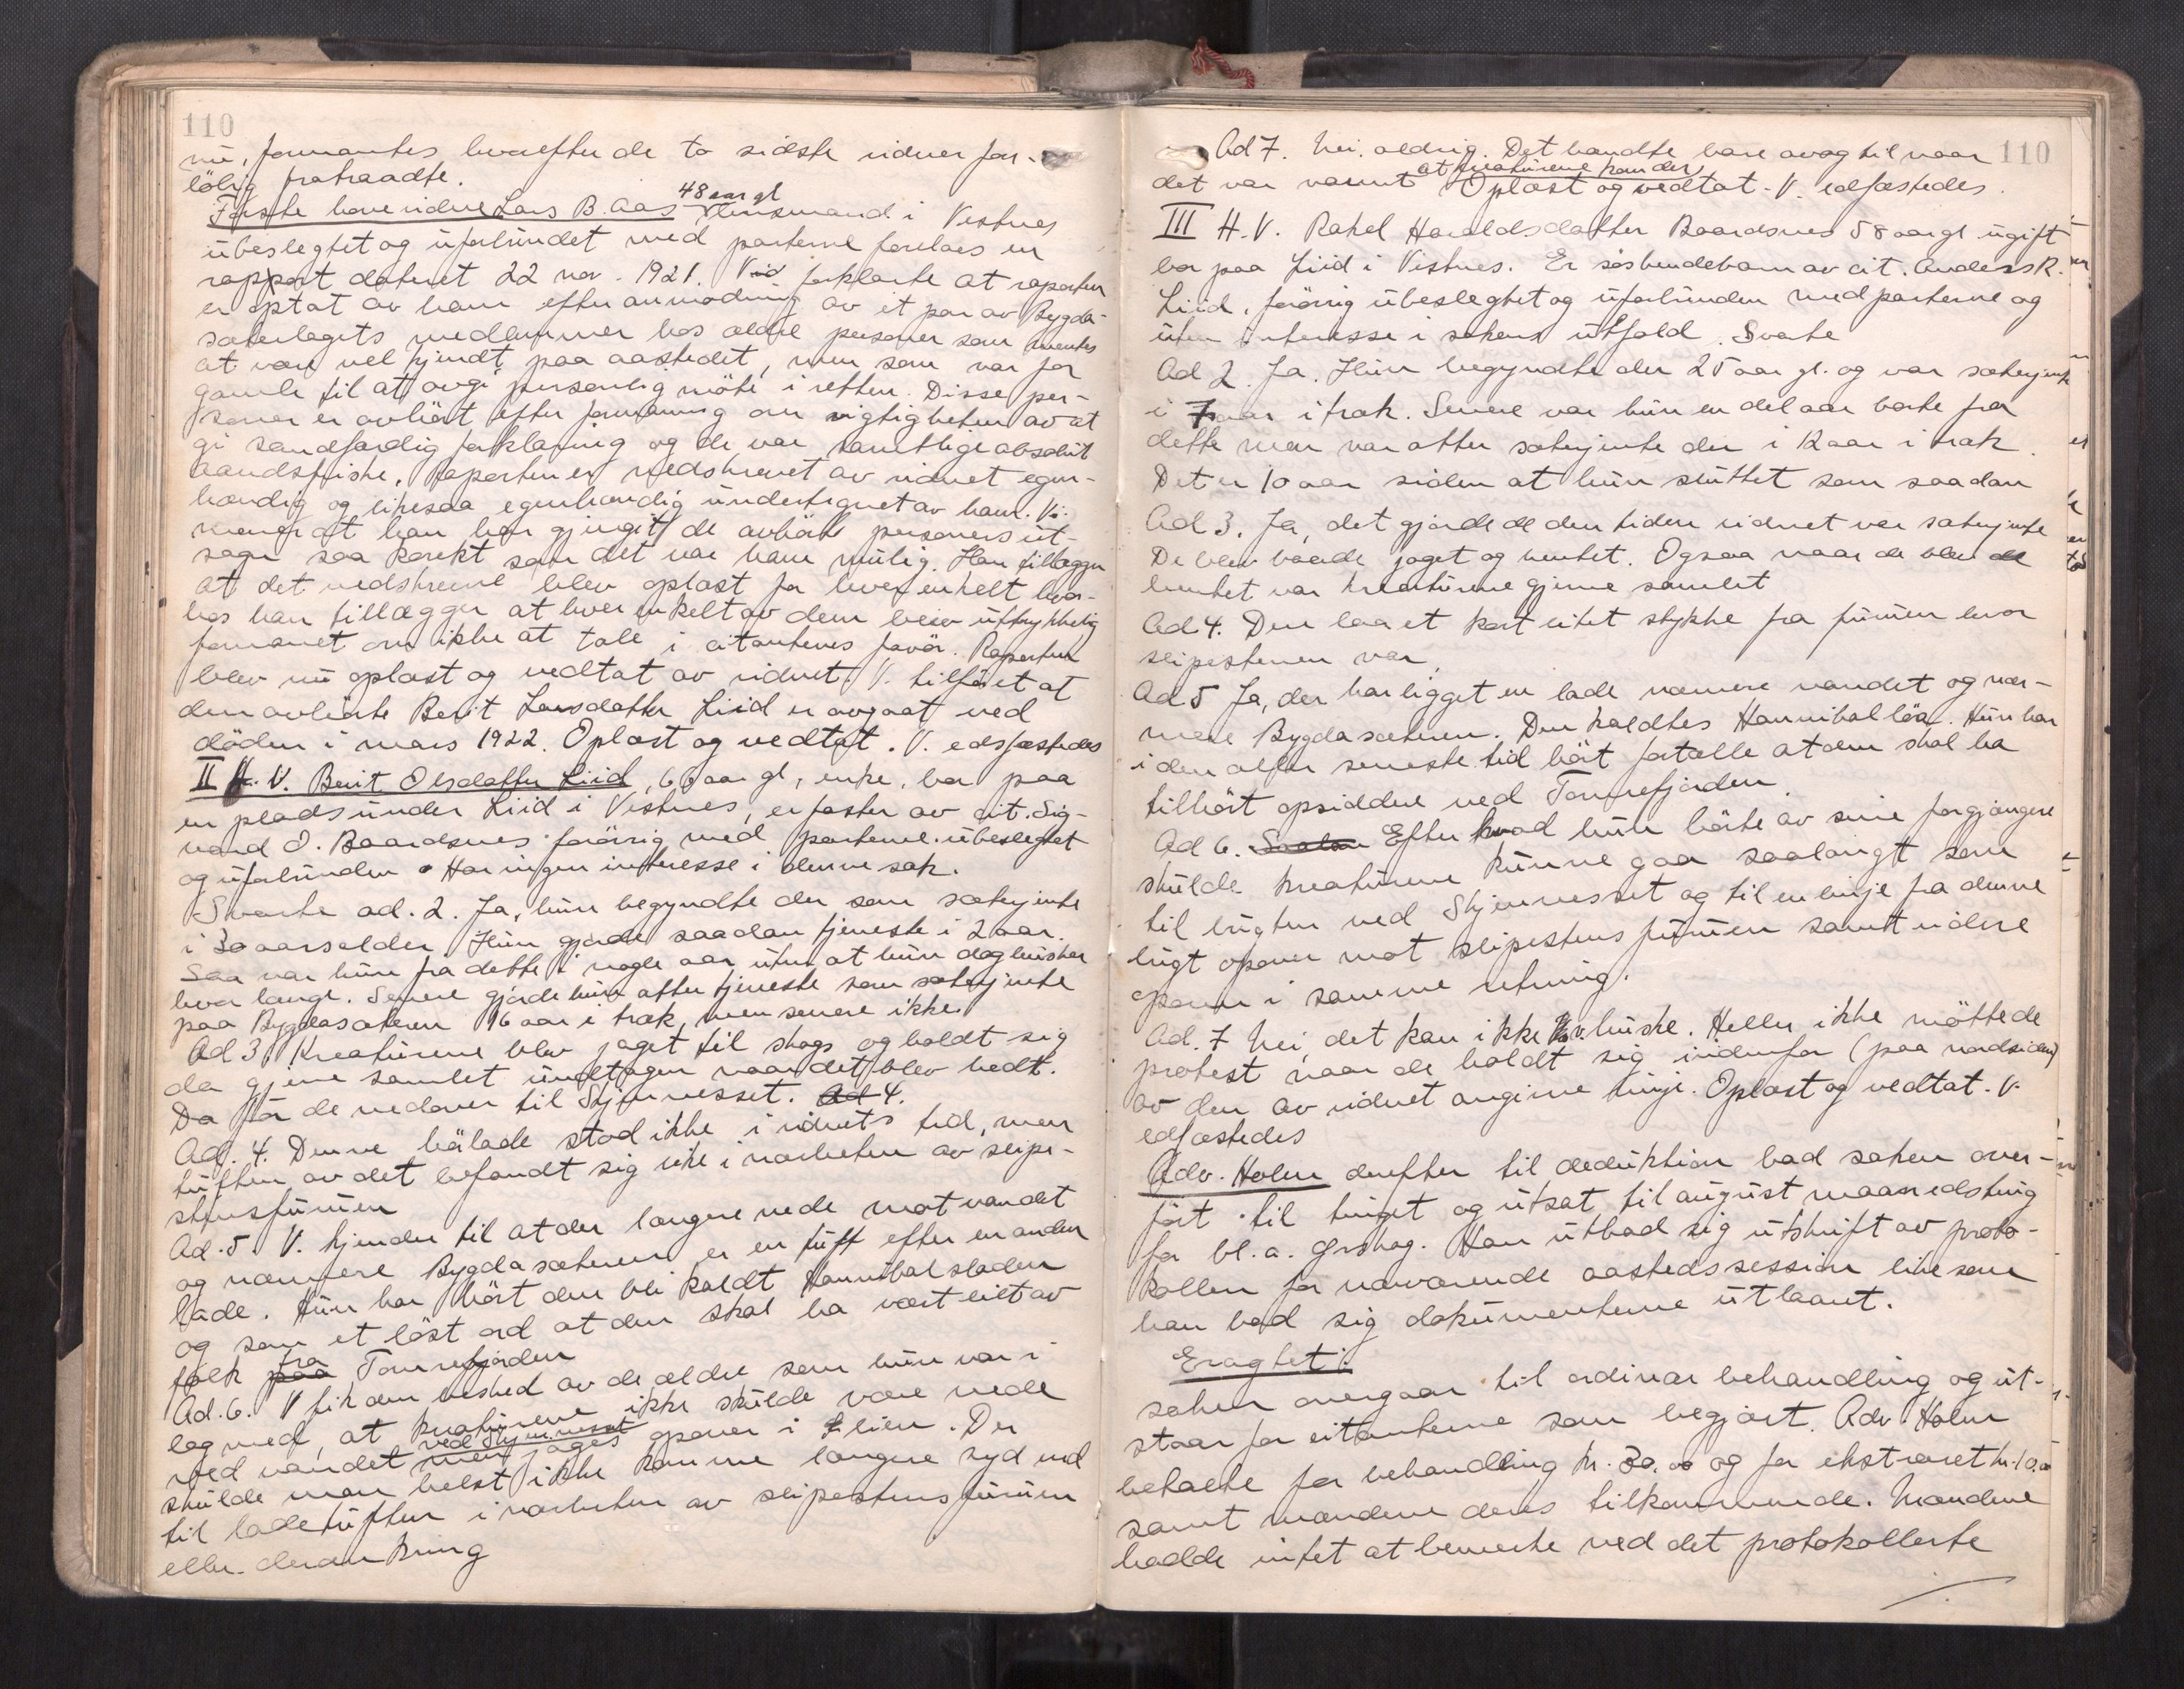 110
nu, formantes hvorefter de to sidste vidner for-
löbig fratraadte.
Förste hovedvidne Lars B. Aas 48 aar gl lensmand i Vestnes
ubeslegtet og uforbundet med parterne forelaes en
rapport dateret 22 nov. 1921. Vid forklarte at raporten
er optat av ham efter anmodning av et par av Bygda-
sæterlagets medlemmer hos ældre personer som mentes
at være vel kjendt paa aastedet, men som var for
gamle til at avgi personlig möte i retten. Disse per-
soner er avhört efter formaning om vigtigheten av at
gi sandfærdig forklaring og de var samtlige absolut
aandsfriske. Raporten er nedskrevet av vidnet egen-
hændig og likesaa egenhændig undertegnet av ham. Vi.
mener at han har gjengit de avhörte personers ut-
sagn saa korekt som det var ham mulig. Han tillægger
at det nedskrevne blev oplæst for hver enkelt hvor-
hos han tillægger at hver enkelt av dem blev uttrykkelig
formanet om ikke at tale i citantenes favör. Raporten
blev nu oplæst og vedtat av vidnet. V. tilföiet at
den avhörte Berit Larsdatter Liid er avgaat ved
döden i mars 1922. Oplæst og vedtat. V. edsfæstedes
II H. V. Berit Olsdatter Liid, 66 aar gl, enke, bor paa
en plads under Liid i Vestnes, er faster av cit. Sig-
vard O. Baardsnes forövrig med parterne ubeslegtet
og uforbunden. Har ingen interesse i denne sak.
Svarte ad. 2. Ja, hun begyndte der som sæterjente
i 30 aarsalder. Hun gjorde saadan tjeneste i 2 aar.
Saa var hun fra dette i nogle aar uten at hun dog husker
hvor længe. Senere gjorde hun atter tjeneste som sæterjente
paa Bygdasæteren 16 aar i træk, men senere ikke.
Ad 3. Kreaturene blev jaget til skogs og holdt sig
da gjerne samlet undtagen naar det blev hedt.
Da för de nedover til Skjinnesset. Ad 4.
Ad. 4. Denne hölade stod ikke i vidnets tid, men
tuften av det befandt sig like i nærheten av slipe-
stensfuruen
Ad. 5. V. kjender til at der længere nede mot vandet
og nærmere Bygdasæteren er en tuft efter en anden
lade. Hun har hört den bli kaldt Hannibalsladen
og som et löst ord at den skal ha vært eiet av
folk paa fra Tomrefjorden
Ad. 6. V fik den besked av de ældre som hun var i
lag med, at kreaturene ikke skulde være nede
ved vandet ved Skjinnesset men jages opover i Liien. Der
skulde man helst ikke komme længere syd end
til ladetuften i nærheten av slipestensfuruen
eller deromkring
110
Ad 7. Nei, aldrig. Det hændte bare avog til naar
det var varmt at kreaturene kom der. Oplæst og vedtat. V. edfæstedes.
III H. V. Rakel Haraldsdatter Baardsnes 58 aar gl. ugift
bor paa Liid i Vestnes. Er söskendebarn av cit. Anders R.
Liid, forövrig ubeslegtet og uforbunden med parterne og
uten interesse i sakens utfald. Svarte
Ad 2. Ja. Hun begyndte der 25 aar gl. og var sæterjente
i 7 aar i træk. Senere var hun en del aar borte fra
dette men var atter sæterjente der i 12 aar i træk.
Det er 10 aar siden at hun sluttet som saadan
Ad 3. Ja, det gjorde de den tiden vidnet var sæterjente
De blev baade jaget og hentet. Ogsaa naar de blev de
hentet var kreaturene gjerne samlet
Ad 4. Den laa et kort litet stykke fra furuen hvor
slipestenen var.
Ad 5 Ja, der har ligget en lade nærmere vandet og nær-
mere Bygdasæteren. Den kaldtes Hanniballöa. Hun har
i den aller seneste tid hört fortælle at den skal ha
tilhört opsiddere ved Tomrefjorden.
Ad 6. Saalan Efter hvad hun hörte av sine forgjængere
skulde kreaturene kunne gaa saalangt som
til bugten ved Skjinnesset og til en linje fra denne
bugt opover mot slipestensfuruen samt videre
opover i samme retning.
Ad. 7 Nei, det kan ikke V. huske. Heller ikke mötte de
protest naar de holdt sig indenfor (paa nordsiden)
av den av vidnet angivne linje. Oplæst og vedtat. V.
edfæstedes
Adv. Holm derefter til deduktion bad saken over-
fört til tinget og utsat til august maanedsting
for bl. a. forlig. Han utbad sig utskrift av proto-
kollen for nærværende aastedssession likesom
han bad sig dokumenterne utlaant.
Eragtet:
saken overgaar til ordinær behandling og ut-
staar for citanterne som begjært. Adv Holm
betalte for behandling kr. 30.00 og for ekstraret kr. 10.00
samt mændene deres tilkommende. Mændene
hadde intet at bemerke ved det protokollerte